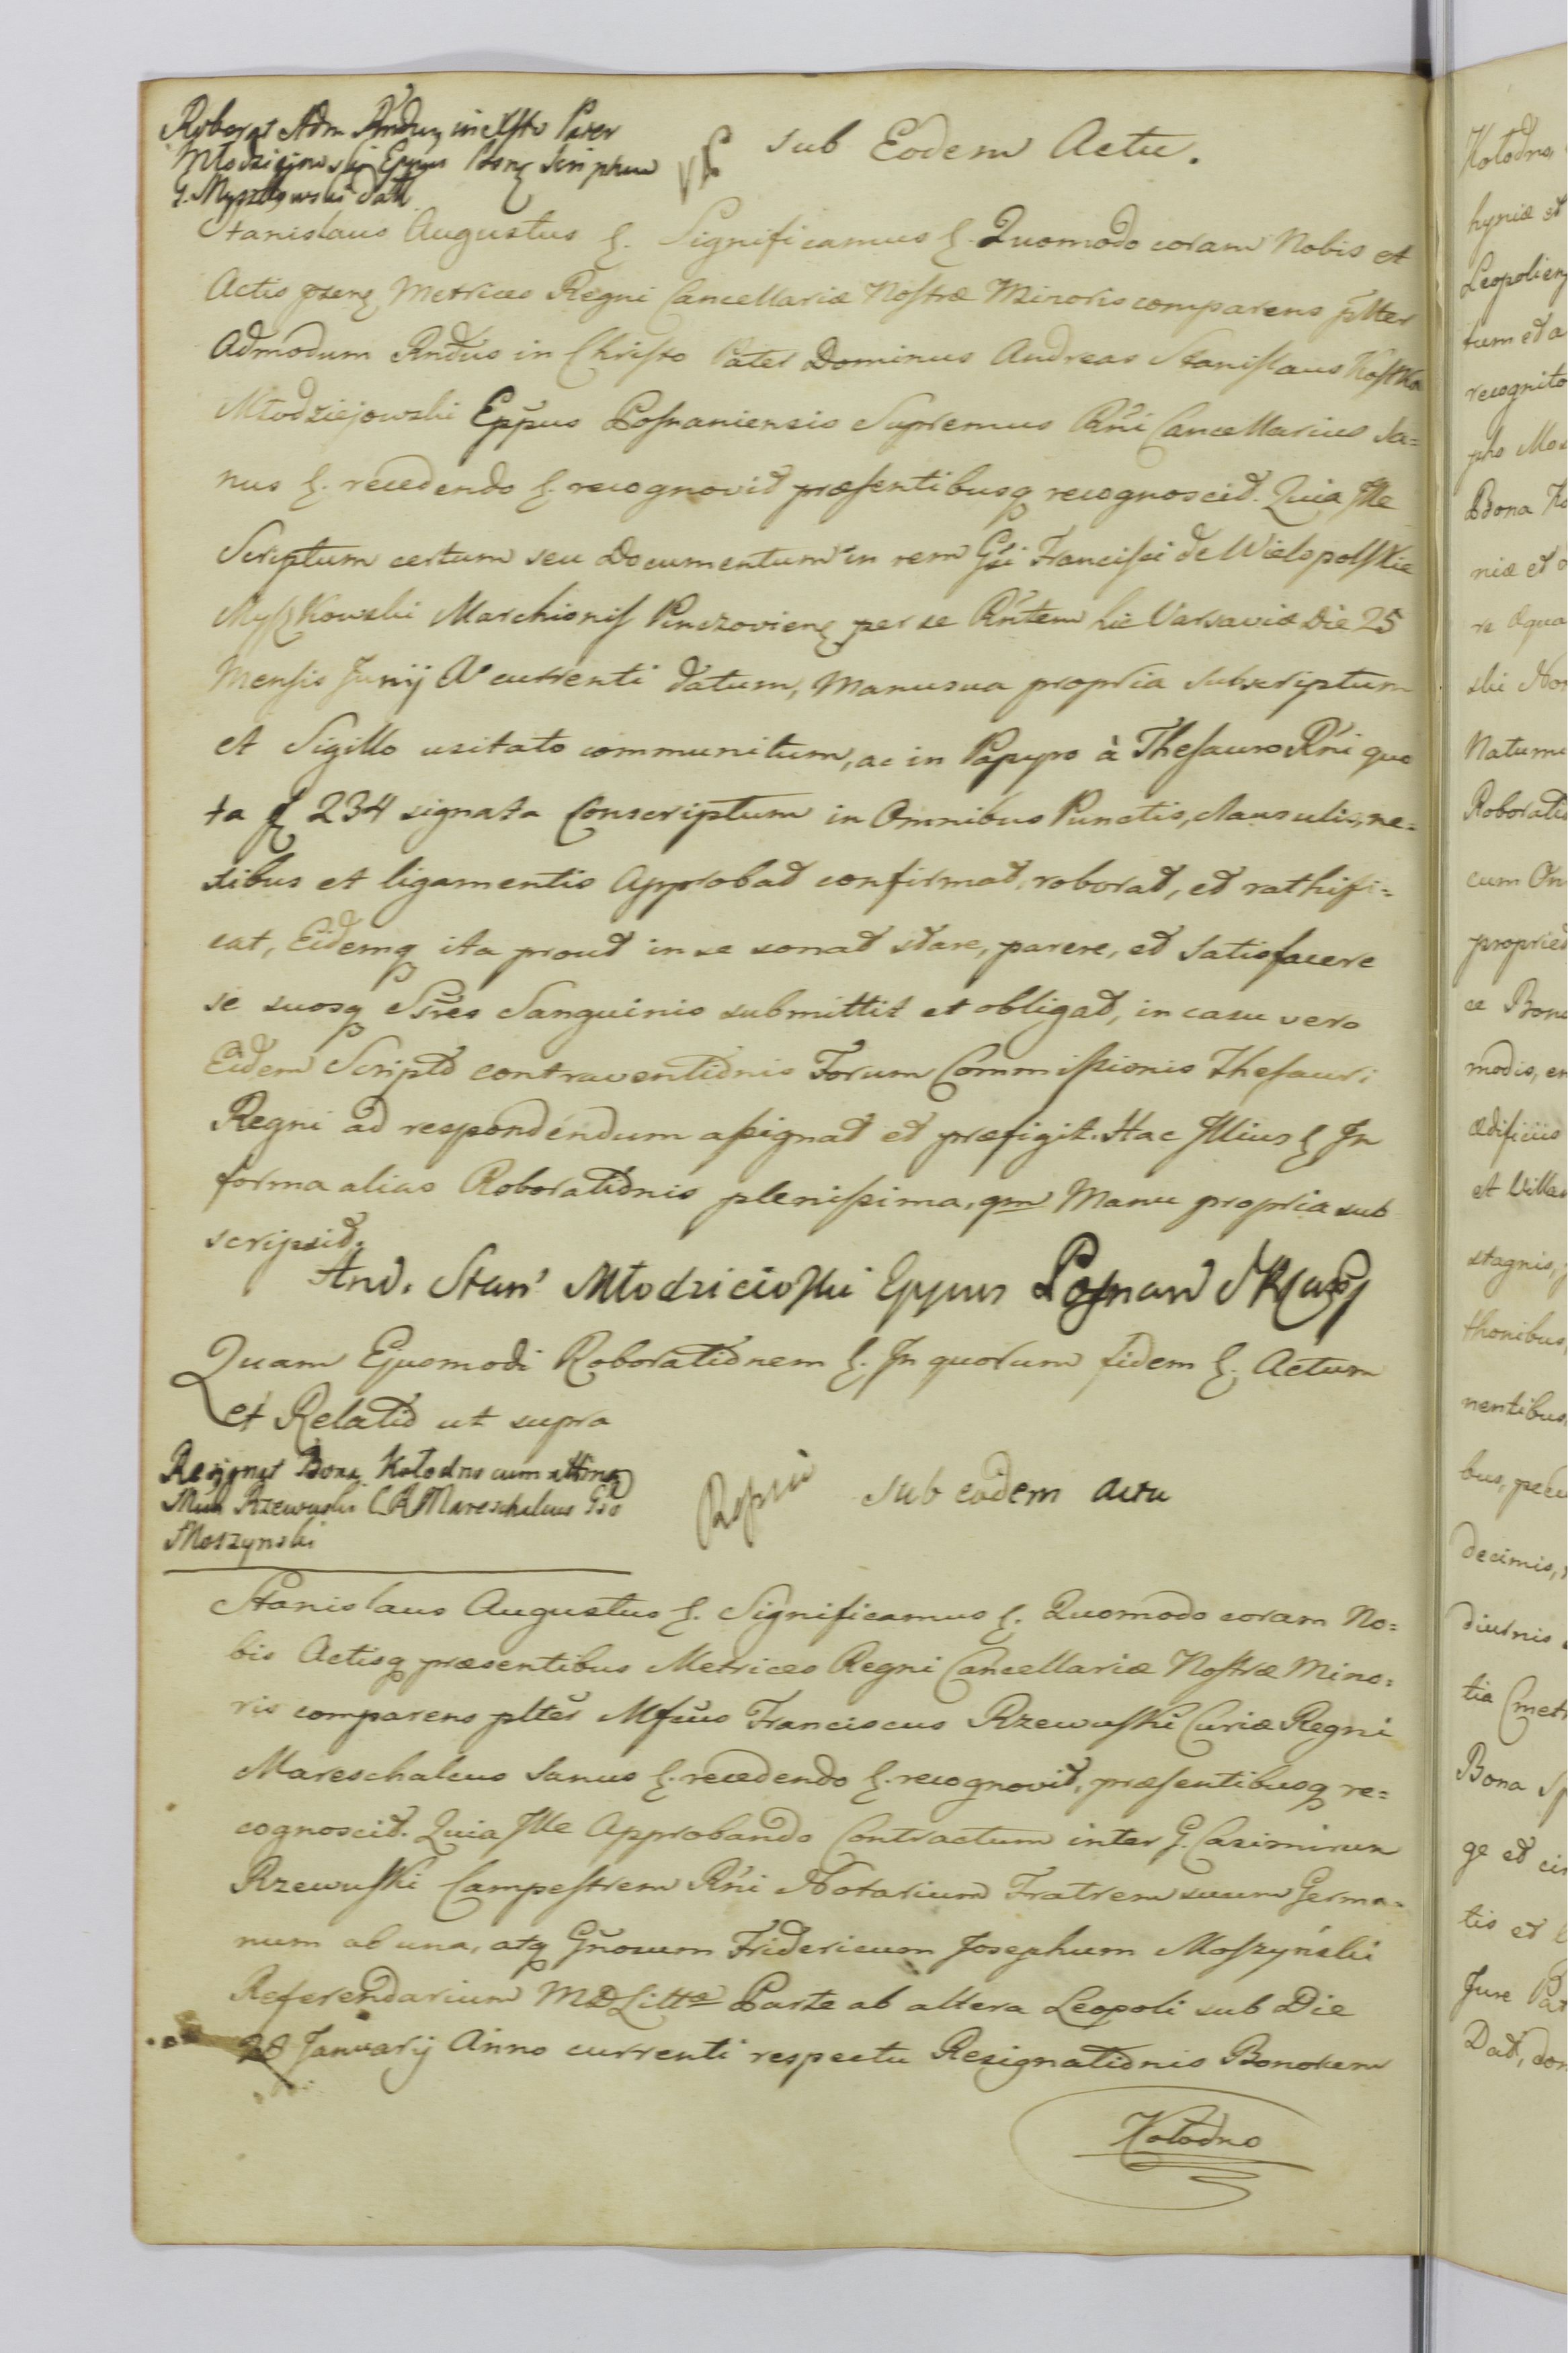 Roborat Adm Rndus in Xsto Pater
Młodziejowski Eppus Posn Scriptum
G. Myszkowski dat
sub Eodem Actu.
Stanislaus Augustus &. Significamus &. Quomodo coram Nobis et
Actis psens Metrices Regni Cancellariæ Nostræ Minoris comparens pslter
Admodum Rndus in Christo Pater Dominus Andreas Stanislaus Kostka
Młodziejowski Eppus Posnaniensis Supremus Rni Cancellarius Sa=
nus &. recedendo &. recognovit præsentibusq recognoscit. Quia Ille
Scriptum certum seu Documentum in rem Gsi Francisci de Wielopolskie
Myszkowski Marchionis Pinczoviens per se Rntem hic Varsaviæ Die 25
Mensis Junij A° currenti datum, Manu sua propria subscriptum
et Sigillo usitato communitum, ac in Papyro à Thesauro Rni quo
ta 234 signata Conscriptum in Omnibus Punctis, clausulis, ne=
xibus et ligamentis Approbat confirmat, roborat, et rathifi=
cat, Eidemq ita prout in se sonat stare, parere, et satisfacere
se suosq Ssres Sanguinis submittit et obligat, in casu vero
Eidem Scripto contraventionis Forum Commissionis Thesauri
Regni ad respondendum assignat et præfigit. Hac Illius & In
forma alias Roborationis plenissima, qm Manu propria sub
scripsit.
And. Stan Młodzieiowski Eppus Posnan
Quam Ejusmodi Roborationem &. In quorum fidem &. Actum
et Relatio ut supra
Resignat Bona Kołodno cum attinen
Rzewuski C R Mareschalcus Gso
Moszynski
sub eodem actu
Stanislaus Augustus &. Significamus &. Quomodo coram No=
bis Actisq præsentibus Metrices Regni Cancellariæ Nostræ Mino=
ris comparens plter Mfcus Franciscus Rzewuski Curiæ Regni
Mareschalcus Sanus &. recedendo &. recognovit, præsentibusq re=
cognoscit. Quia Ille Approbando Contractum inter G. Casimirum
Rzewuski Campestrem Rni Notarium Fratrem suum Germa=
num ab una, atq Gnosum Fridericum Josephum Moszyński
Referendarium MDLittæ Parte ab altera Leopoli sub Die
28 Januarij Anno currenti respectu Resignationis Bonorum
Kołodno